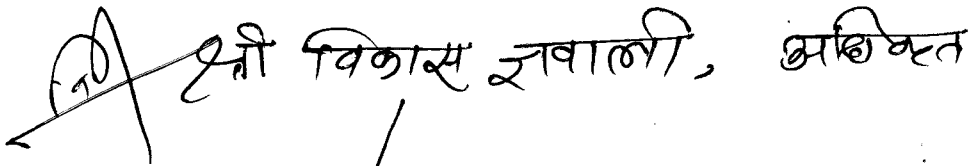 श्री विकास ज्ञवाली, अधिकृत